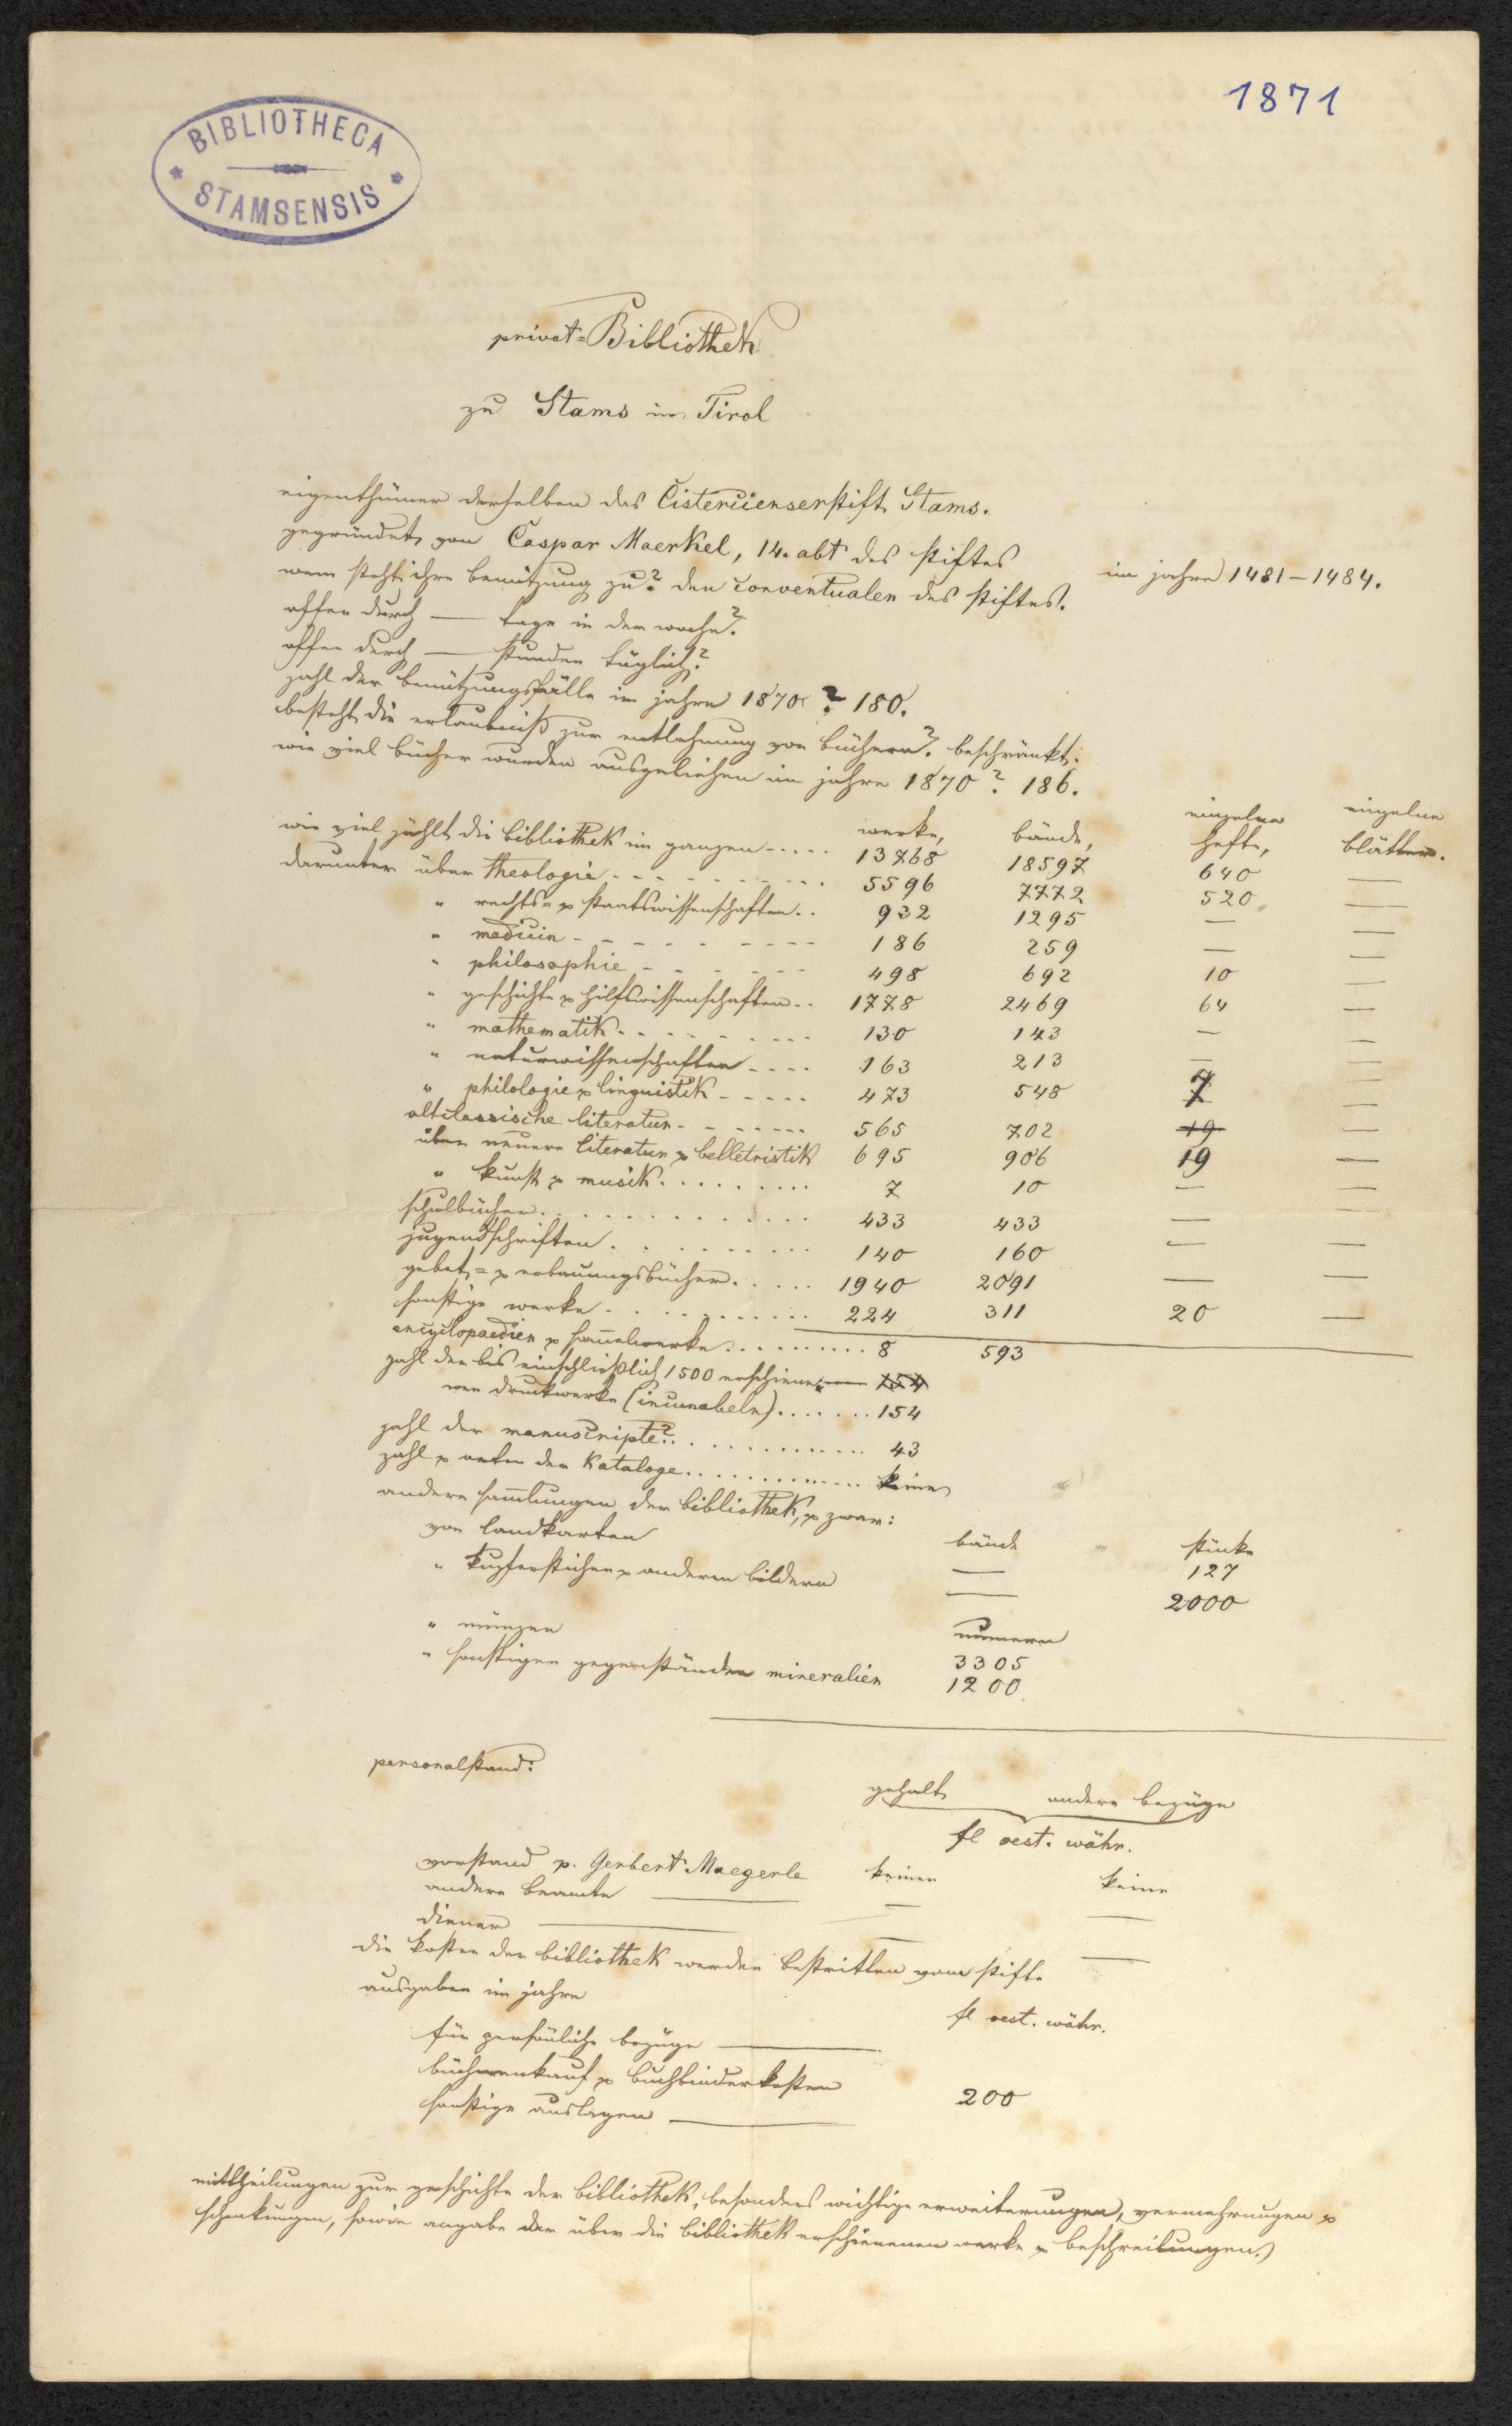 1871
BIBLIOTHECA
STAMSENSIS
privat=Bibliothek
zu Stams in Tirol
eigenthümer derselben das Cistercienserstift Stams.
gegründet von Caspar Maerkel, 14. abt des stiftes im jahre 1481–1484.
wem steht ihre benützung zu? den conventualen des stiftes.
offen durch — tage in der woche?
offen durch — stunden täglich?
zahl der benützungsfälle im jahre 1870? 180.
besteht die erlaubniß zur entlehnung von büchern? beschränkt.
wie viel bücher wurden ausgeliehen im jahre 1870? 186.
werke, bände, einzelne hefte, einzelne blätter.
wie viel zählt die bibliothek im ganzen ----- 13768 18597 640 —
darunter über theologie ---------- 5596 7772 520 —
" rechts= & staatswissenschaften .. 932 1295 — —
" medicin --------- 186 259 — —
" philosophie ------- 498 692 10 —
" geschichte & hilfswissenschaften -- 1778 2469 64 —
" mathematik -------- 130 143 — —
" naturwissenschaften ---- 163 213 — —
" philologie & linguistik ----- 473 548 7 —
altclassische literatur ------- 565 702 19 —
über neuere literatur & belletristik 695 906 19 —
" kunst & musik ......... 7 10 — —
schulbücher ............. 433 433 — —
jugendschriften .......... 140 160 — —
gebet= & erbauungsbücher ..... 1940 2091 — —
sonstige werke ........... 224 311 20 —
encyclopaedien & sammelwerke ......... 8 593
zahl der bis einschließlich 1500 erschiene= 154
nen druckwerke (incunabeln) ....... 154
zahl der manuscripte? ............. 43
zahl & arten der Kataloge ............. keine
andere sammlungen der bibliothek, & zwar:
bände stücke
von landkarten — 127
" kupferstichen & anderen bildern — 2000
numern
" münzen 3305
" sonstigen gegenständen mineralien 1200
personalstand:
gehalt andere bezüge
fl oest. währ.
vorstand p. Gerbert Maegerle keinen keine
andere beamte — — —
diener — — —
die kosten der bibliothek werden bestritten vom stifte
ausgaben im jahre
fl oest. währ.
für persönliche bezüge —
bücherankauf & buchbinderkosten 200
sonstige auslagen —
mittheilungen zur geschichte der bibliothek, besonders wichtige erweiterungen, vermehrungen &
schenkungen, sowie angabe der über die bibliothek erschienenen werke & beschreibungen.)